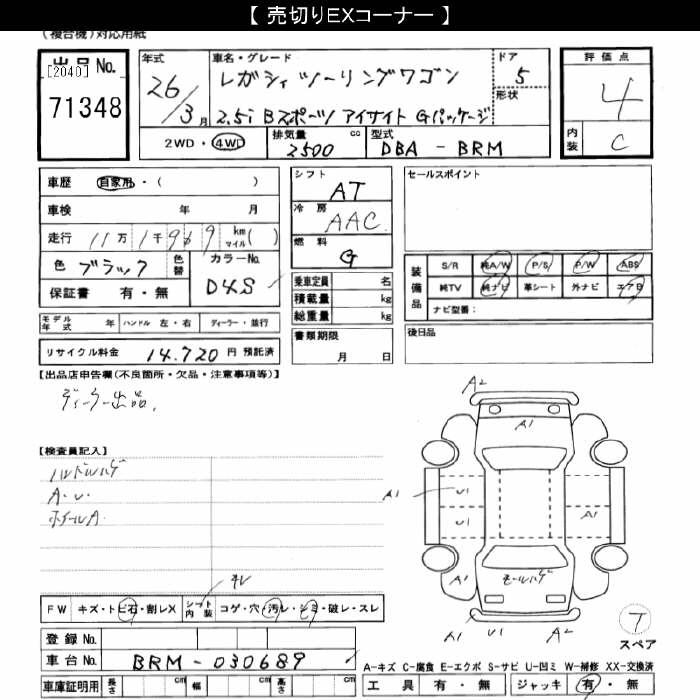 【 売切りEXコーナー 】
(複合機)対応用紙
出品 No.
[2040]
71348
年式
26/3月
車名・グレード
レガシィツーリングワゴン
2.5i Bスポーツ アイサイト Gパッケージ
ドア
5
形状
2WD・4WD
排気量 cc
2500
型式
DBA - BRM
評価点
4
内装
C
車歴 自家用・( )
車検 年 月
走行 11万1千969 km マイル( )
色 ブラック 色替
カラーNo.
D4S
保証書 有・無
モデル年式 年 ハンドル 左・右 ディーラー・並行
リサイクル料金 14.720 円 預託済
シフト
AT
冷房
AAC
燃料
G
乗車定員 名
積載量 kg
総重量 kg
書類期限
月 日
セールスポイント
装備品
S/R 純A/W P/S P/W ABS
純TV 純ナビ 革シート 外ナビ エアB
ナビ型番:
後日品
【出品店申告欄(不良箇所・欠品・注意事項等)】
ディーラー出品.
【検査員記入】
ハンドルハゲ
A.U.
ホイールA.
A2
A1
A1
U1
U1
A1
A1
モールハゲ
A1
A1
U1
A2
T
スペア
FW キズ・トビ石・割レX
シート内装 コゲ・穴・汚レ・シミ・破レ・スレ
登録 No.
車台 No. BRM-030689
車庫証明用 長さ cm 幅 cm 高さ cm
A-キズ C-腐食 E-エクボ S-サビ U-凹ミ W-補修 XX-交換済
工具 有・無 ジャッキ 有・無